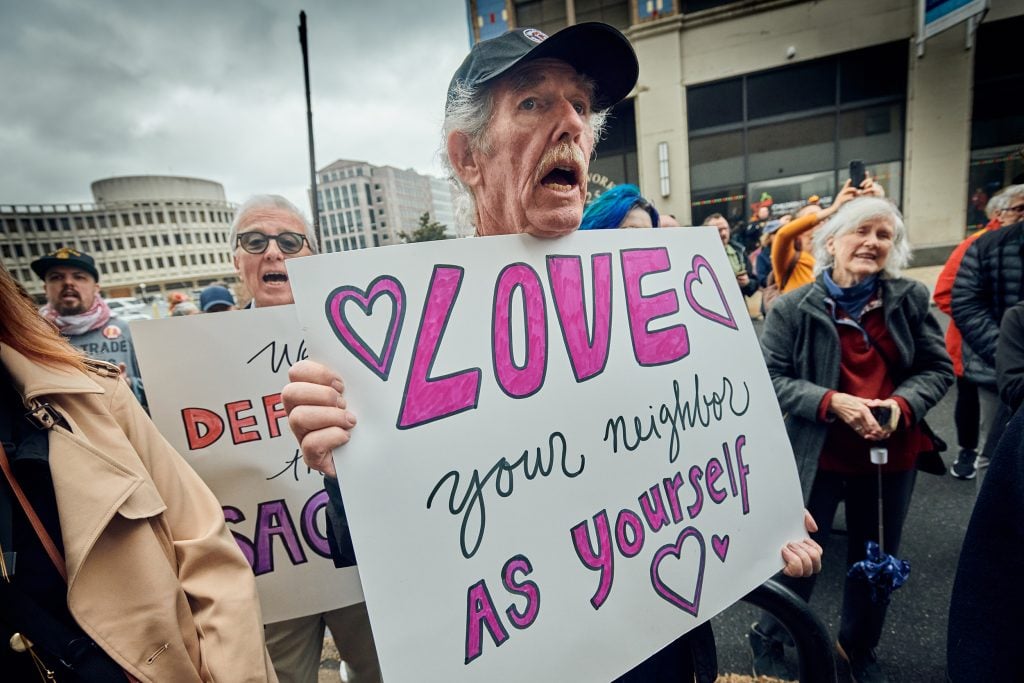 LOVE
your neighbor
As yourself
W
DEF
th
SAC
TRADE
WORK